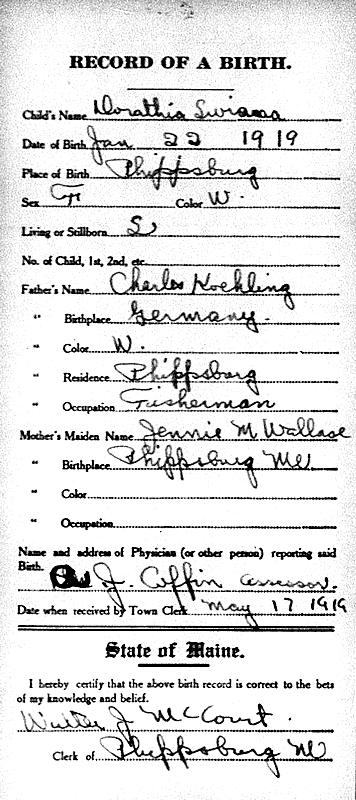 RECORD OF A BIRTH.
Child's Name Dorathia Luviana
Date of Birth Jan 22 1919
Place of Birth Phippsburg
Sex F Color W.
Living or Stillborn L
No. of Child, 1st, 2nd, etc.
Father's Name Charles Koehling
" Birthplace Germany.
" Color W.
" Residence Phippsburg
" Occupation Fisherman
Mother's Maiden Name Jennie M Wallace
" Birthplace Phippsburg Me
" Color
" Occupation
Name and address of Physician (or other person) reporting said
Birth.
J. Coffin assessor.
Date when received by Town Clerk May 17 1919
State of Maine.
I hereby certify that the above birth record is correct to the bets
of my knowledge and belief.
Walter J McCourt.
Clerk of Phippsburg Me